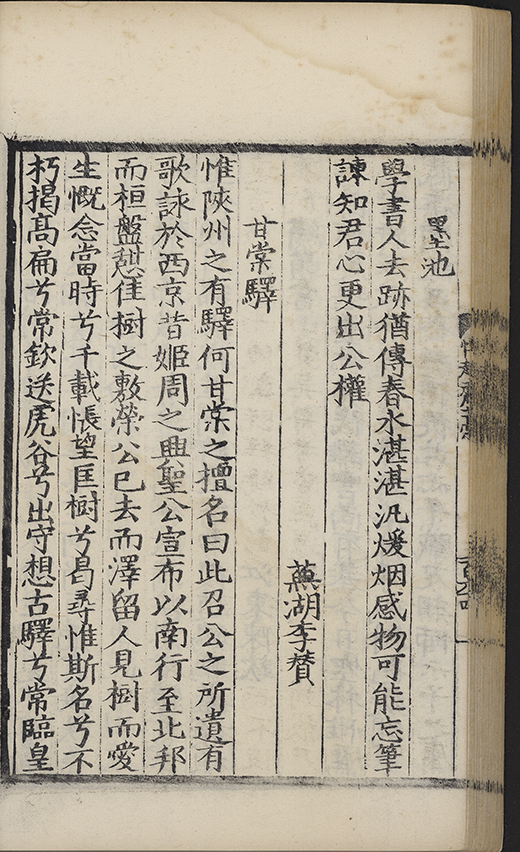 墨池
學書人去跡猶傳春水湛湛汎煖烟感物可能忘筆
諫知君心更出公權
蕪湖李贊
甘棠驛
惟陝州之有驛何甘棠之擅名曰此召公之所遺有
歌詠於西京昔姬周之興聖公宣布以南行至北邦
而桓盤憇佳樹之敷榮公已去而澤留人見樹而愛
生慨念當時兮千載悵望匡樹兮曷尋惟斯名兮不
朽揭高扁兮常欽送虎谷兮出守想古驛兮常臨皇